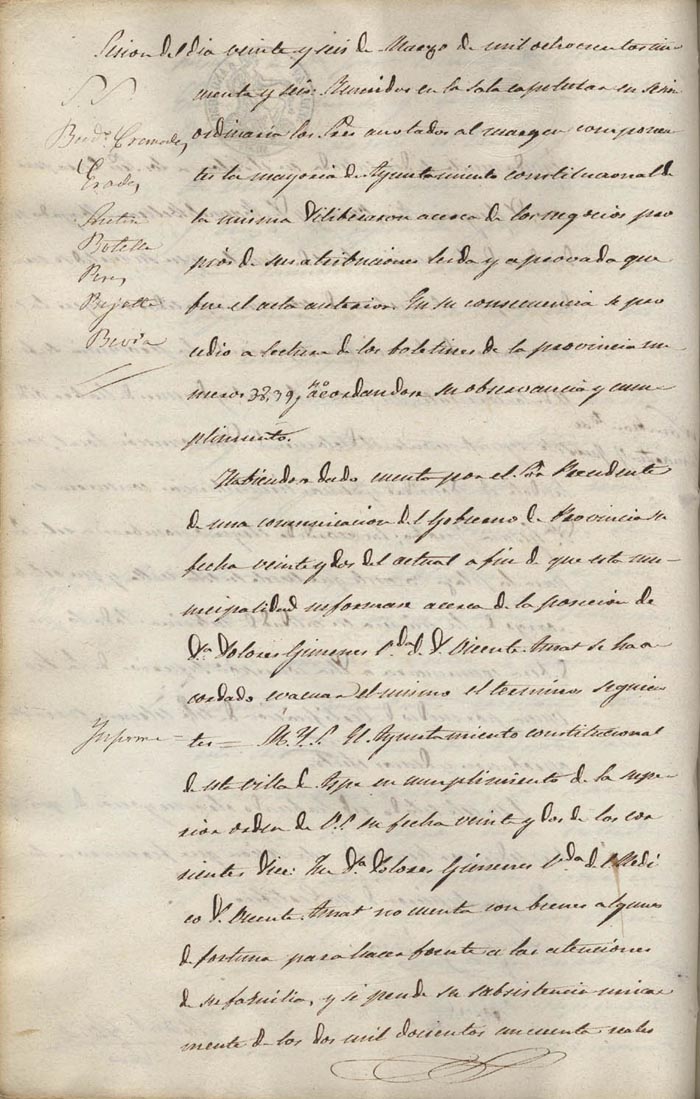 Sesion del dia veinte y seis de Marzo de mil ochocientos cin-
cuenta y seis: Reunidos en la sala capitular en sesion
ordinaria los Sres anotados al margen componen
tes la mayoria de Ayuntamiento constitucional de
la misma deliberaron acerca de los negocios pro
pios de sus atribuciones leida y aprovada que
fue el acta anterior. En su consecuencia se pro
cedio a lectura de los boletines de la provincia nu
meros 38, 39, acordandose su observancia y cum-
plimiento.
S. S.
Cremades
Erades
Botella
Peres
Bevia
Habiendose dado cuenta por el Sor. Presidente
de una comunicacion del Gobierno de Provincia su
fecha veinte y dos del actual a fin de que esta mu-
nicipalidad informase acerca de la posicion de
Dª. Dolores Gimenes Vda. de D. Vicente Amat se ha a
cordado evacuar el mismo el terminos siguien
Informe =
tes = M. Y. S. El Ayuntamiento constitucional
de esta villa de Aspe en cumplimiento de la supe-
rior orden de V.S. su fecha veinte y dos de los cor
rientes dice: Que Dª. Dolores Gimenes Vda. del Medi
co D. Vicente Amat no cuenta con bienes algunos
de fortuna para hacer frente a las atenciones
de su familia, y si pende su subsistencia unica-
mente de los dos mil docientos cincuenta reales